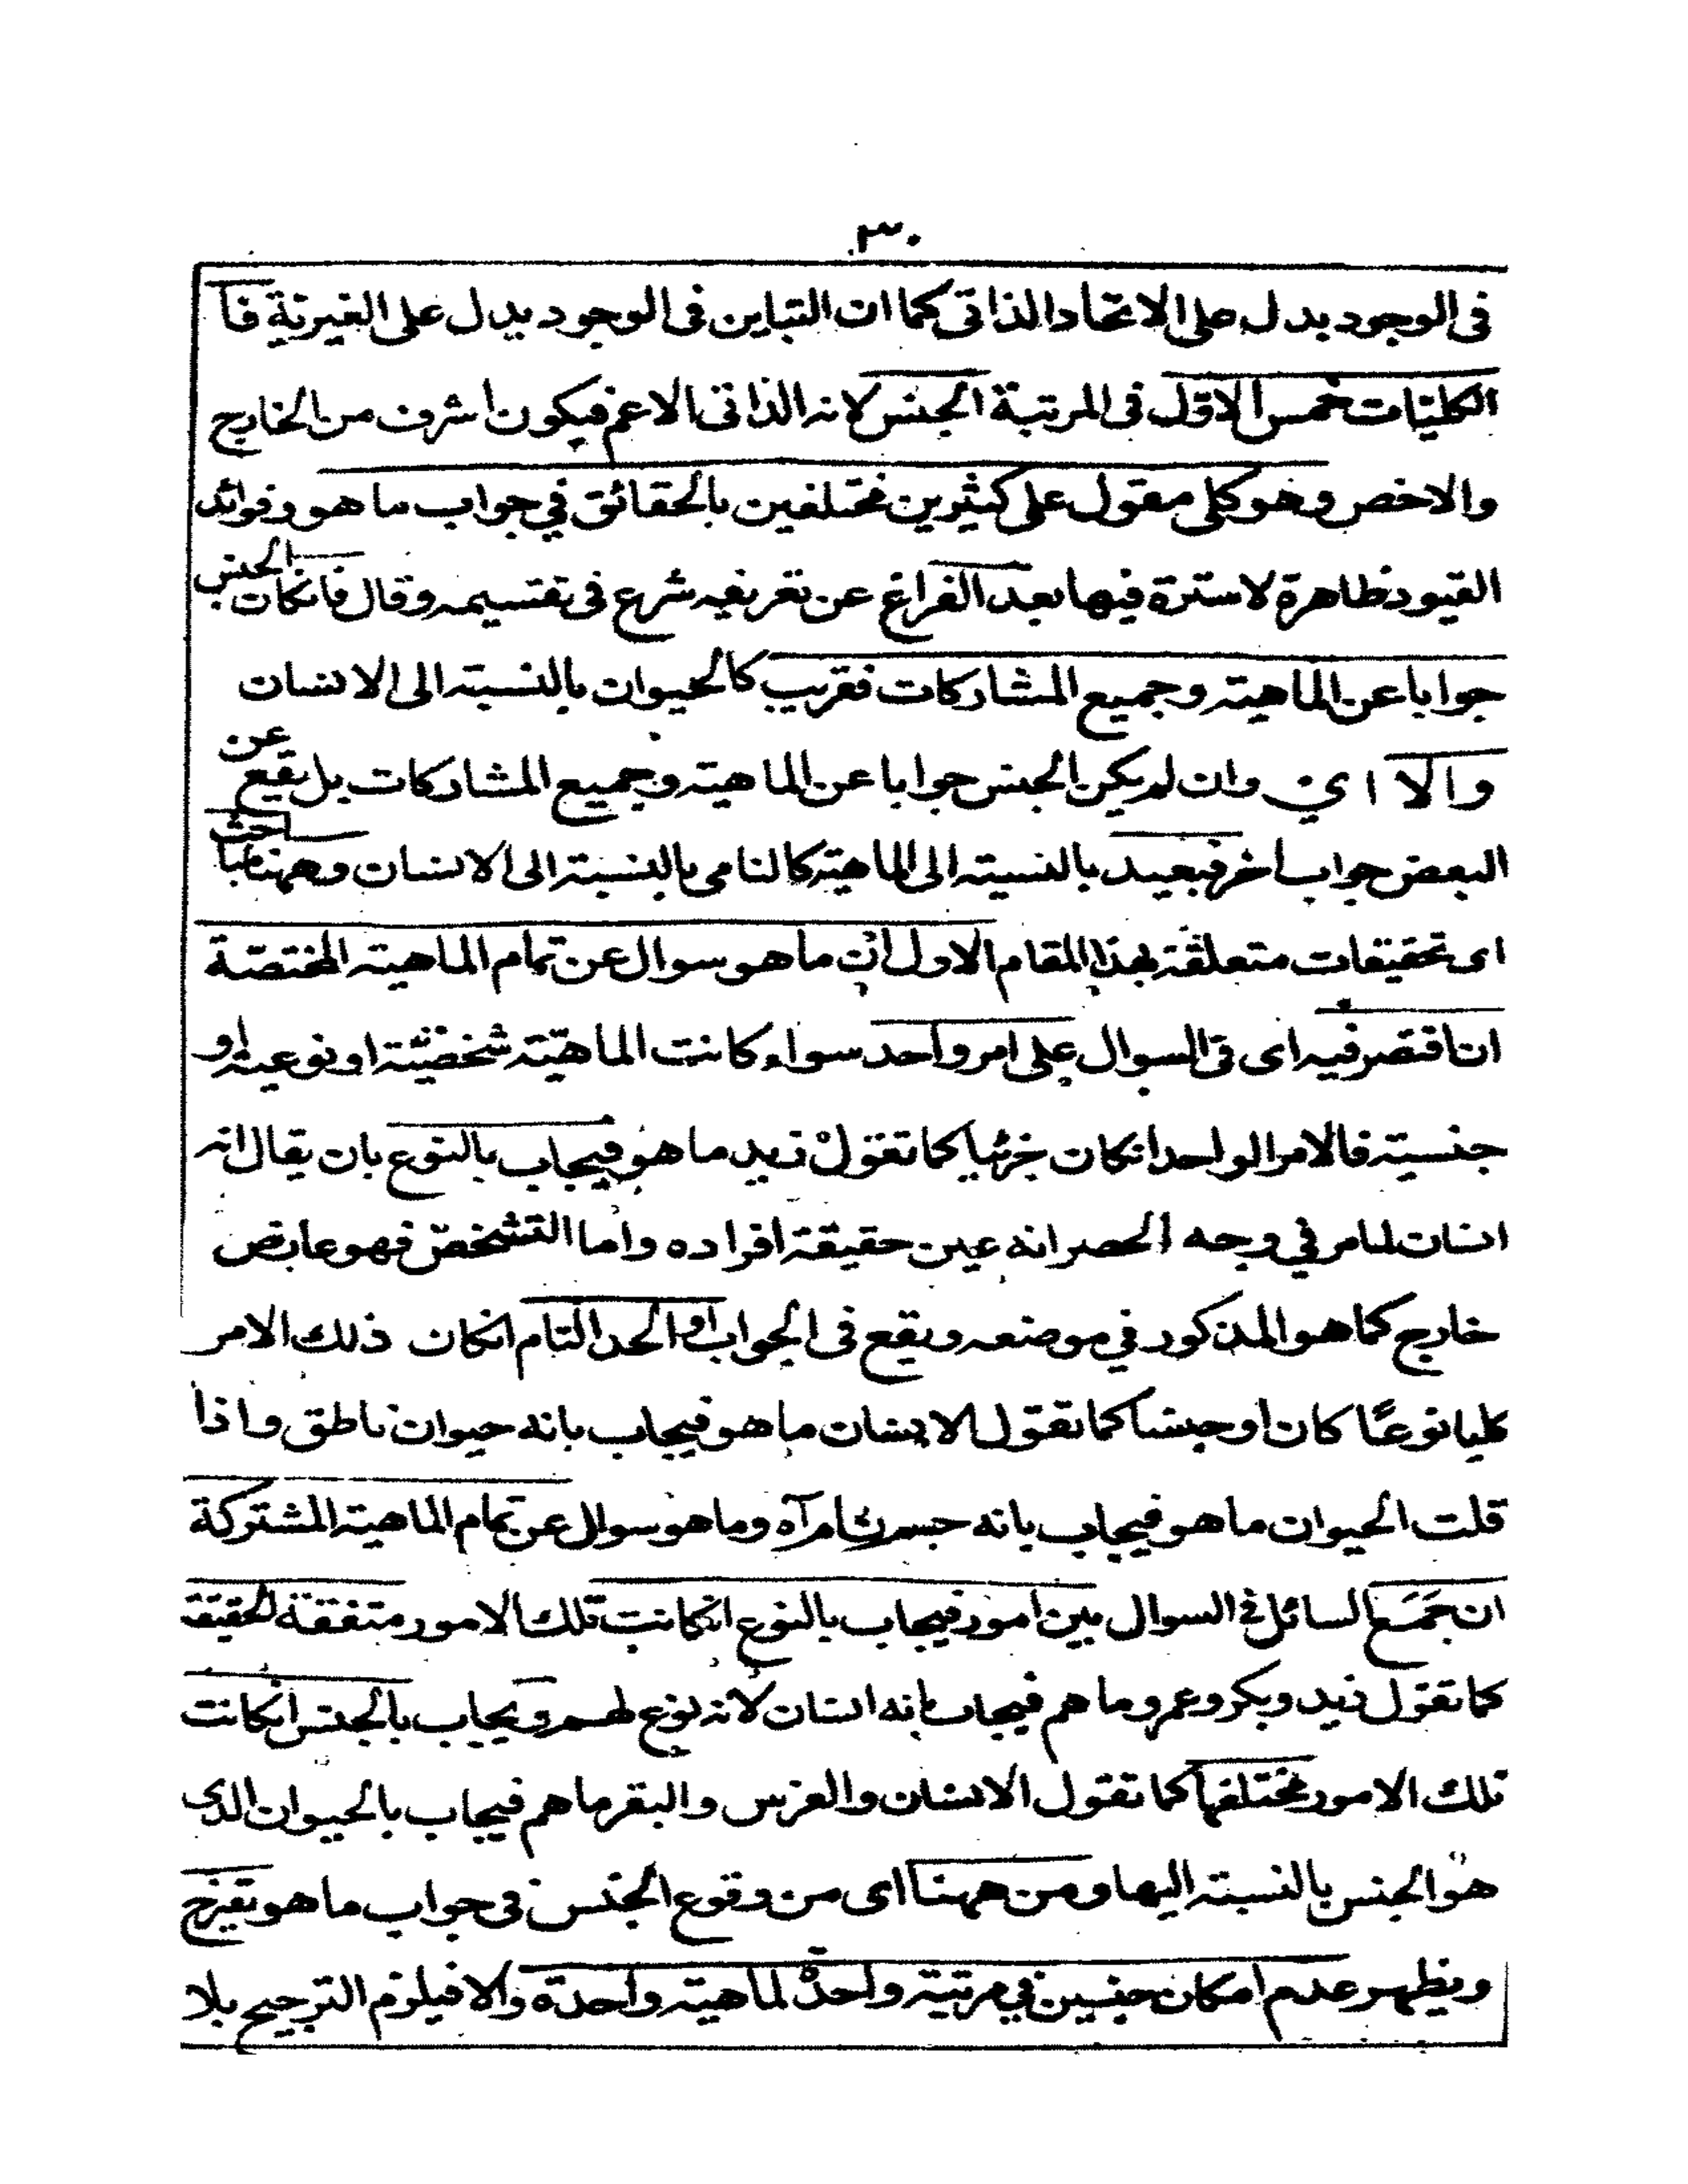 ٣٠
فى الوجود يدل على الاتحاد الذاتى كما ان التباين فى الوجود يدل على الغيرية فا
الكليّات خمس الاول فى المرتبة الجنس لانه الذاتى الاعم فيكون اشرف من الخارج
والاخص وهو كلى مقول على كثيرين مختلفين بالحقائق في جواب ما هو وفوائد
القيود ظاهرة لا سترة فيها بعد الفراغ عن تعريفه شرع فى تقسيمه وقال فانكان الجنس
جوابا عن الماهية وجميع المشاركات فقريب كالحيوان بالنسبة الى الانسان
والا اي وان لم يكن الجنس جوابا عن الماهية وجميع المشاركات بل يقع عن
البعض جواب اخر فبعيد بالنسبة الى الماهية كالنامى بالنسبة الى الانسان وههنا مباحث
اى تحقيقات متعلقة بهذا المقام الاول ان ما هو سوال عن تمام الماهية المختصة
ان اقتصر فيه اى فى السوال على امر واحد سواء كانت الماهية شخصية او نوعية او
جنسية فالامر الواحد انكان جزئيا كما تقول زيد ما هو فيجاب بالنوع بان يقال انه
انسان لما مر في وجه الحصر انه عين حقيقة افراده واما التشخص فهو عارض
خارج كما هو المذكور في موضعه ويقع فى الجواب او الحد التام انكان ذلك الامر
كليا نوعًا كان او جنسا كما تقول الانسان ما هو فيجاب بانه حيوان ناطق واذا
قلت الحيوان ما هو فيجاب بانه جسم نام آه وما هو سوال عن تمام الماهية المشتركة
ان جَمَعَ السائل فى السوال بين امور فيجاب بالنوع انكانت تلك الامور متفقة الحقيقة
كما تقول زيد وبكر وعمر وما هم فيجاب بانه انسان لانه نوع لهم ويجاب بالجنس انكانت
تلك الامور مختلفها كما تقول الانسان والفرس والبقر ما هم فيجاب بالحيوان الذى
هو الجنس بالنسبة اليها ومن ههنا اى من وقوع الجنس فى جواب ما هو تفرج
ويظهر عدم امكان جنسين في مرتبة واحدة لماهية واحدة والا فيلزم الترجيح بلا